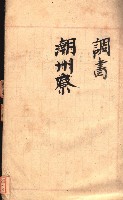 調書
潮州寮